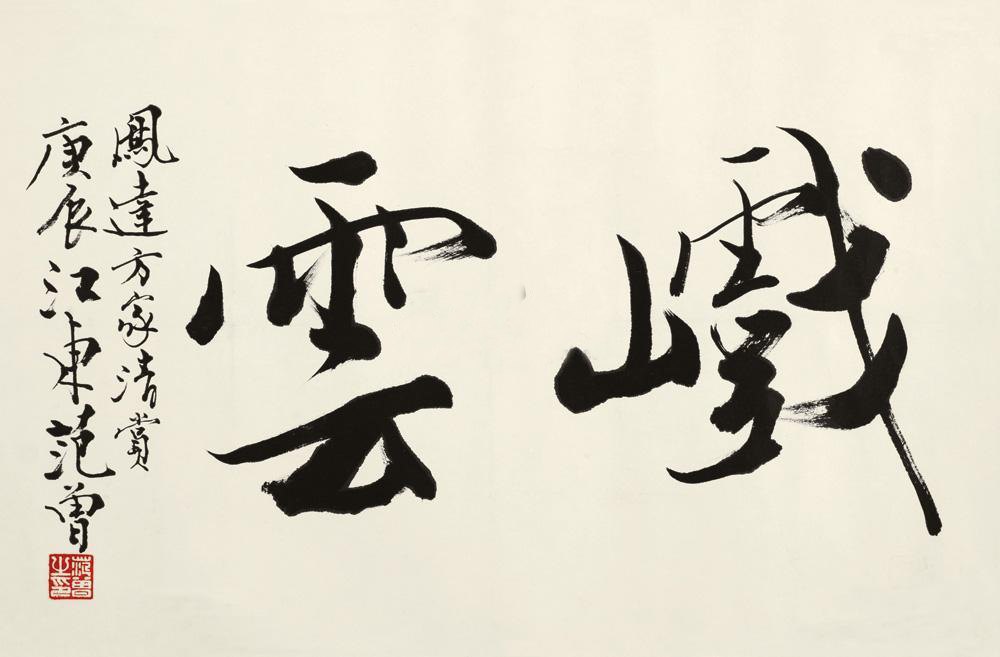 巇雲
鳳達方家清賞
庚辰江東范曾
范曾之印